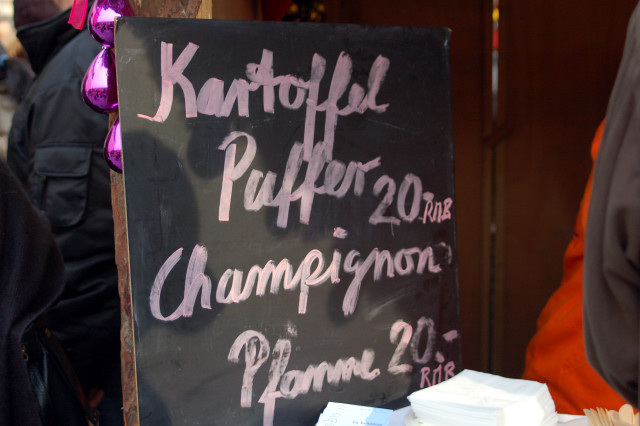 Kartoffel
Puffer 20.- RMB
Champignon
Pfanne 20.- RMB